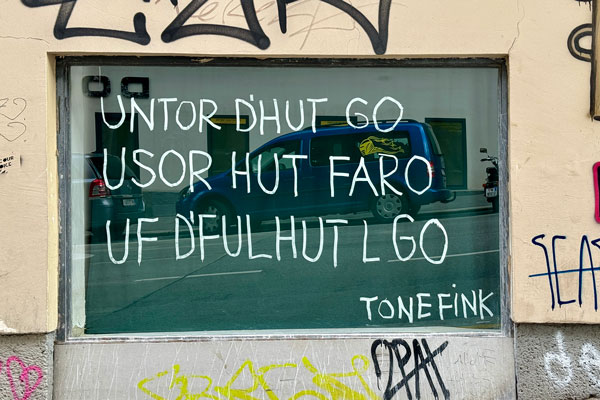 UNTOR D'HUT GO
USOR HUT FARO
UF D'FULHUT L GO
TONE FINK